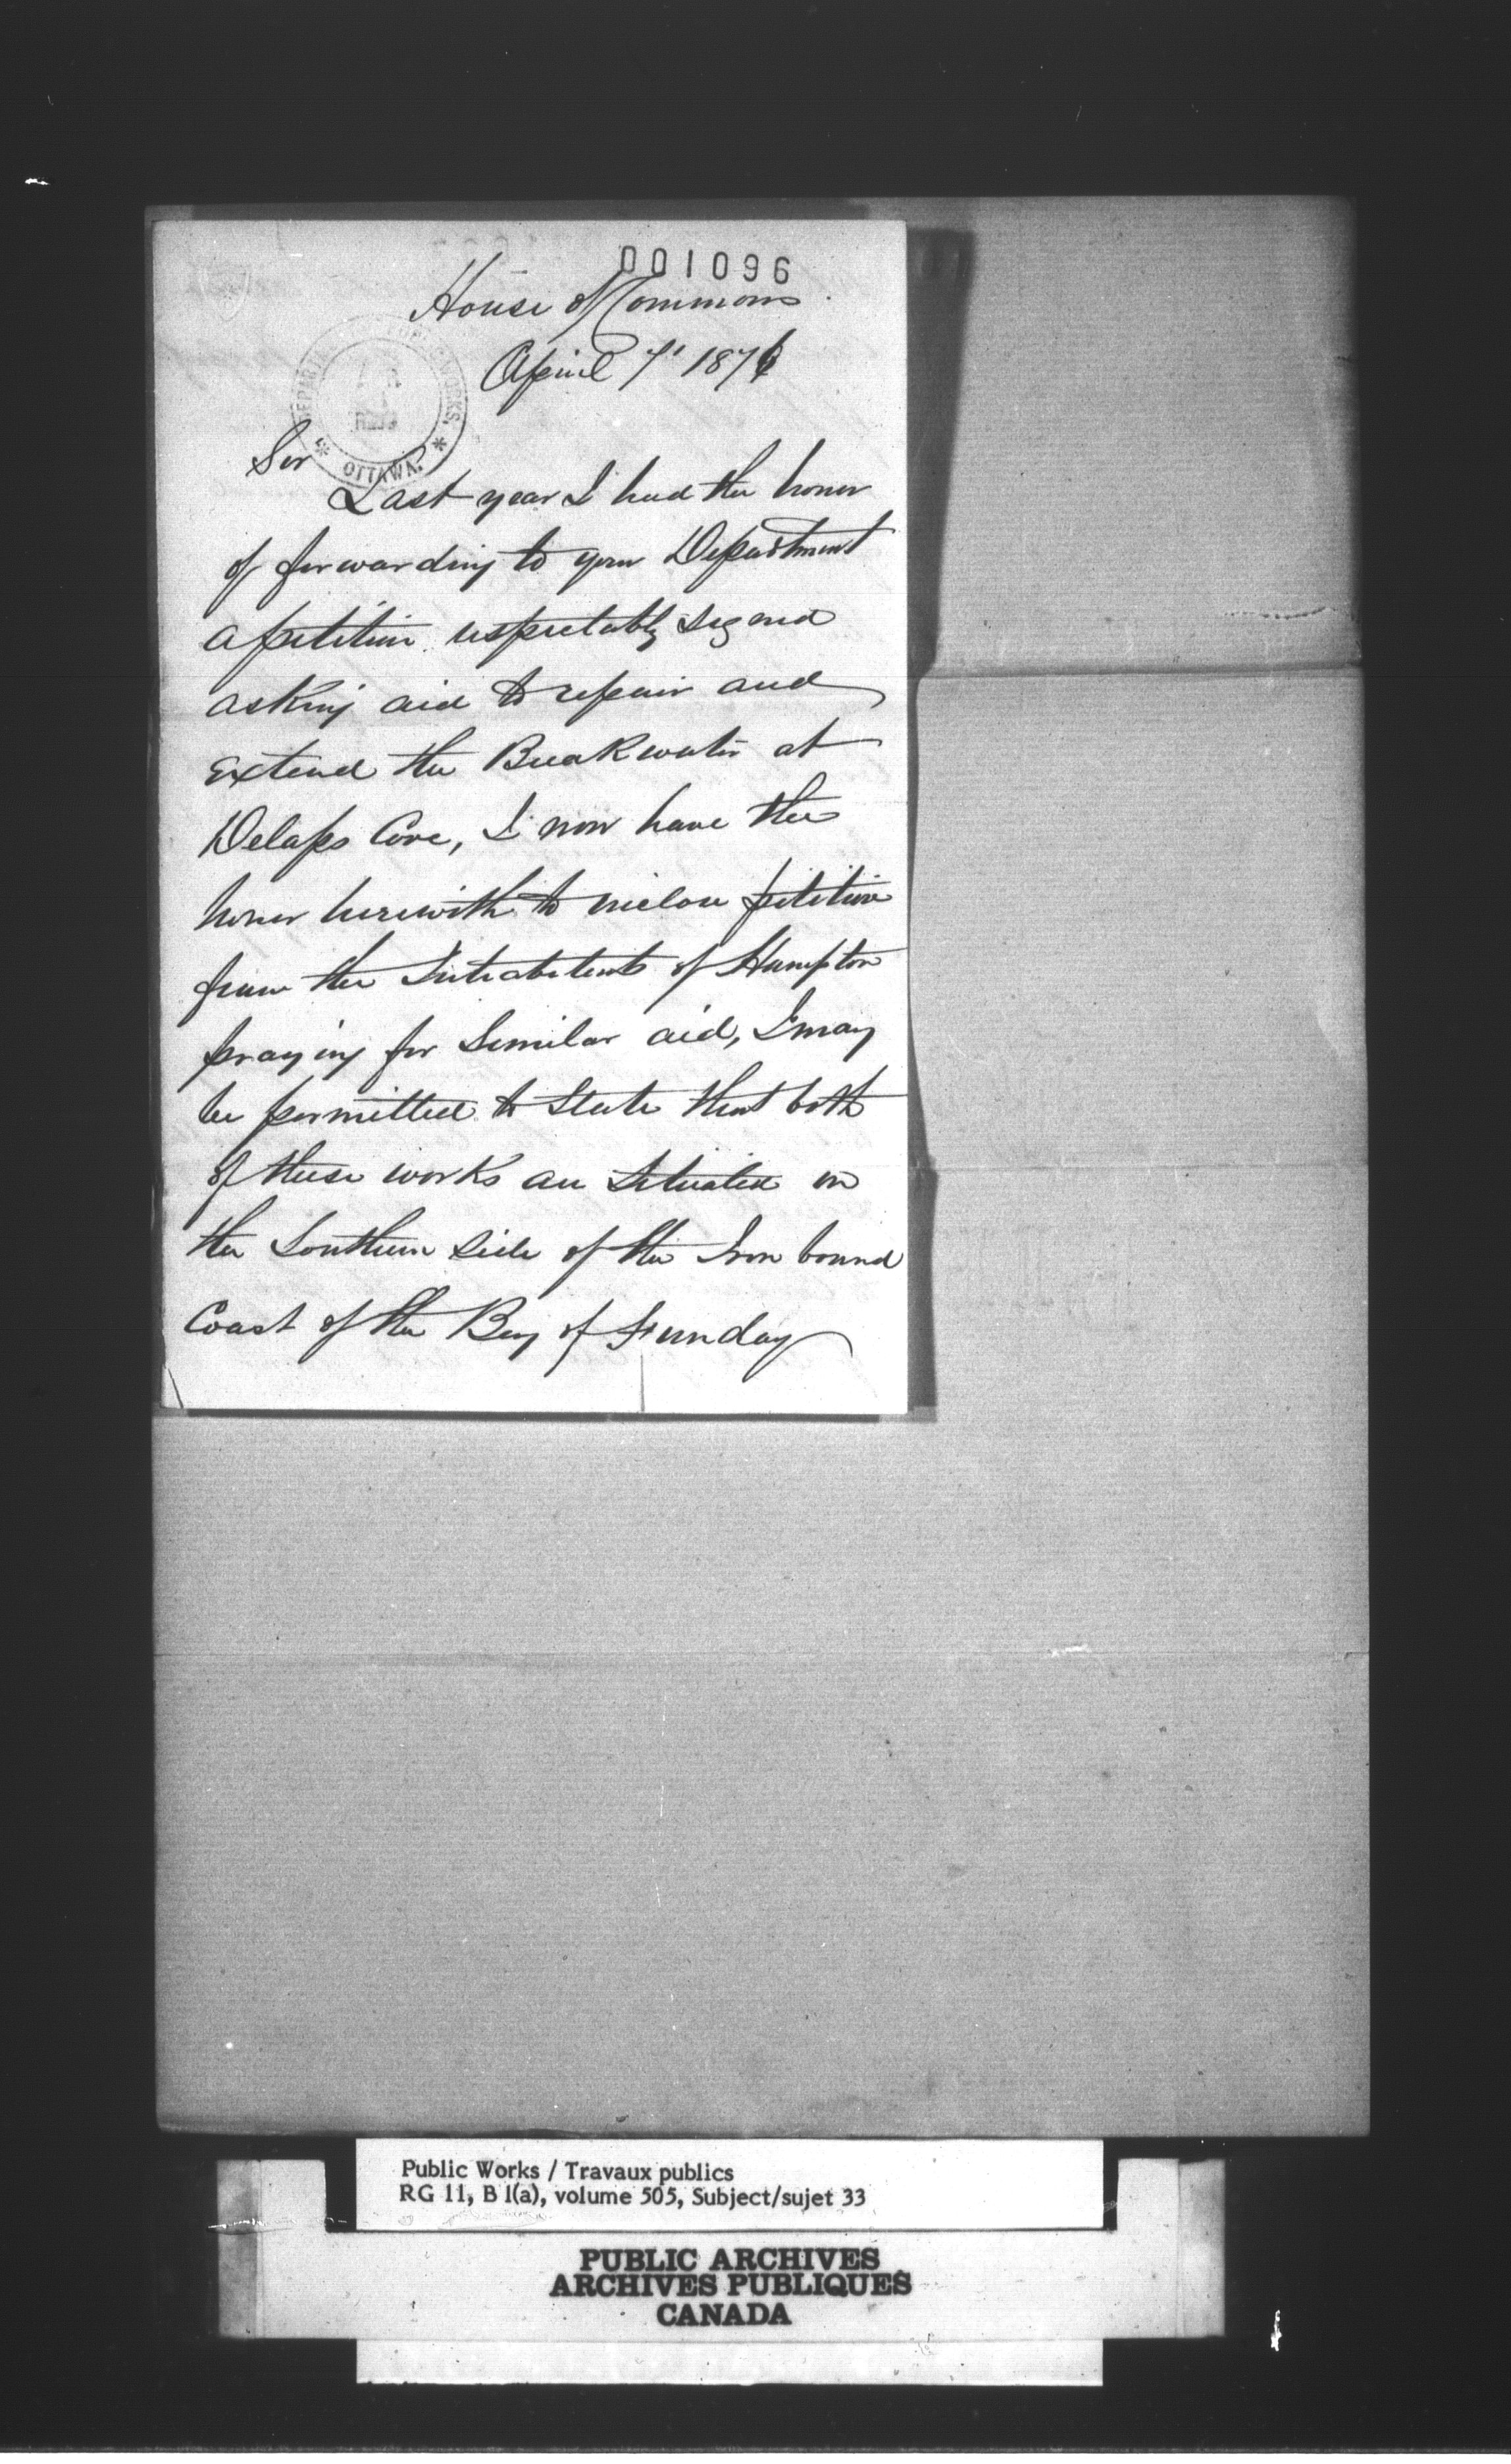 001096
House of Commons
April 7' 1876
DEPARTMENT OF PUBLIC WORKS.
* OTTAWA. *
Sir
Last year I had the honor
of forwarding to your Department
a petition respectably signed
asking aid to repair and
Extend the Breakwater at
Delaps Cove, I now have the
honor herewith to inclose petition
from the Inhabitents of Hampton
praying for Similar aid, I may
be permitted to State that both
of these works are Situated on
the Southern Side of the Iron bound
Coast of the Bay of Funday
Public Works / Travaux publics
RG 11, B 1(a), volume 505, Subject/sujet 33
PUBLIC ARCHIVES
ARCHIVES PUBLIQUES
CANADA